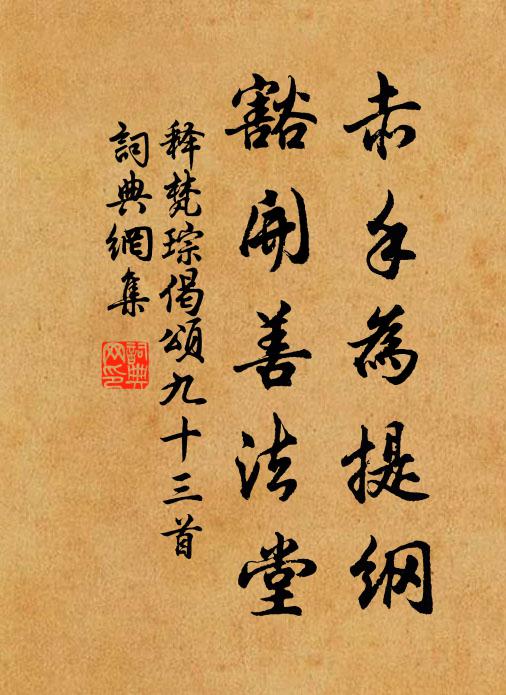 赤手為提綱
豁開善法堂
释梵琮偈頌九十三首
詞典網集
詞典网印